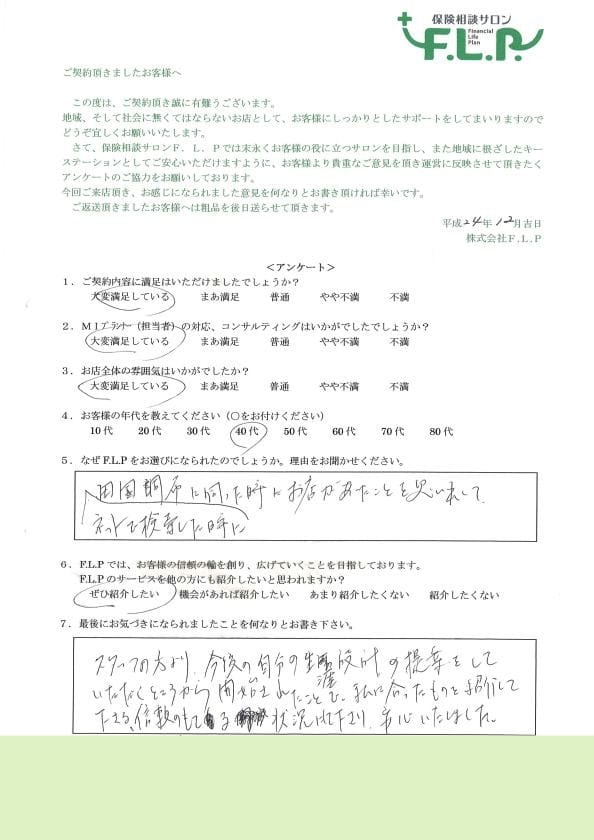 保険相談サロン
F.L.P.
Financial
Life
Plan
ご契約頂きましたお客様へ
この度は、ご契約頂き誠に有難うございます。
地域、そして社会に無くてはならないお店として、お客様にしっかりとしたサポートをしてまいりますので
どうぞ宜しくお願いいたします。
さて、保険相談サロンF．L．Pでは末永くお客様の役に立つサロンを目指し、また地域に根ざしたキー
ステーションとしてご安心いただけますように、お客様より貴重なご意見を頂き運営に反映させて頂きたく
アンケートのご協力をお願いしております。
今回ご来店頂き、お感じになられました意見を何なりとお書き頂ければ幸いです。
ご返送頂きましたお客様へは粗品を後日送らせて頂きます。
平成24年12月吉日
株式会社F.L.P
＜アンケート＞
1．ご契約内容に満足はいただけましたでしょうか？
大変満足している まあ満足 普通 やや不満 不満
2．MIプランナー（担当者）の対応、コンサルティングはいかがでしたでしょうか？
大変満足している まあ満足 普通 やや不満 不満
3．お店全体の雰囲気はいかがでしたか？
大変満足している まあ満足 普通 やや不満 不満
4．お客様の年代を教えてください（○をお付けください）
10代 20代 30代 40代 50代 60代 70代 80代
5．なぜF.L.Pをお選びになられたのでしょうか。理由をお聞かせください。
に伺った時にお店があったことを思い出して
ネットで検索した時に
6．F.L.Pでは、お客様の信頼の輪を創り、広げていくことを目指しております。
F.L.Pのサービスを他の方にも紹介したいと思われますか？
ぜひ紹介したい 機会があれば紹介したい あまり紹介したくない 紹介したくない
7．最後にお気づきになられましたことを何なりとお書き下さい。
スタッフの方より、今後の自分の生涯設計の提案をして
いただくところから開始されたことで、私に合ったものを紹介して
下さる、信頼のもてる状況にて下さり、安心いたしました。